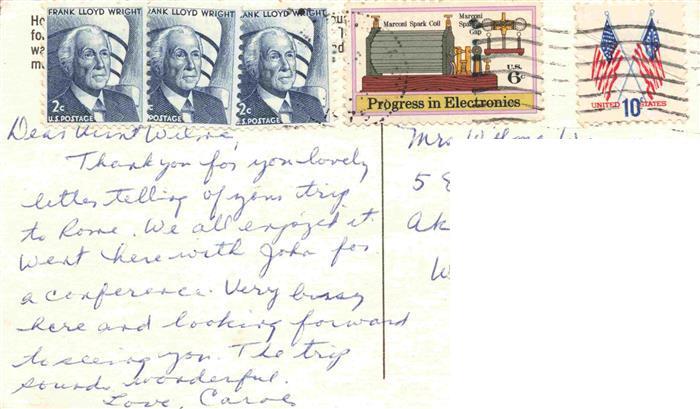 FRANK LLOYD WRIGHT
ANK LLOYD WRIGHT
ANK LLOYD WRIGHT
2c
2c
2c
U.S. POSTAGE
S. POSTAGE
S. POSTAGE
Marconi Spark Coil
Marconi Spark Gap
U.S.
6c
Progress in Electronics
UNITED 10c STATES
Dear Aunt Wilma,
Thank you for you lovely
letter telling of your trip
to Rome. We all enjoyed it.
Went here with John for
a conference. Very bussy
here and looking forward
to seeing you. The trip
sounds wonderful.
Love, Carol
Mrs. Wilma
5
Ak
W